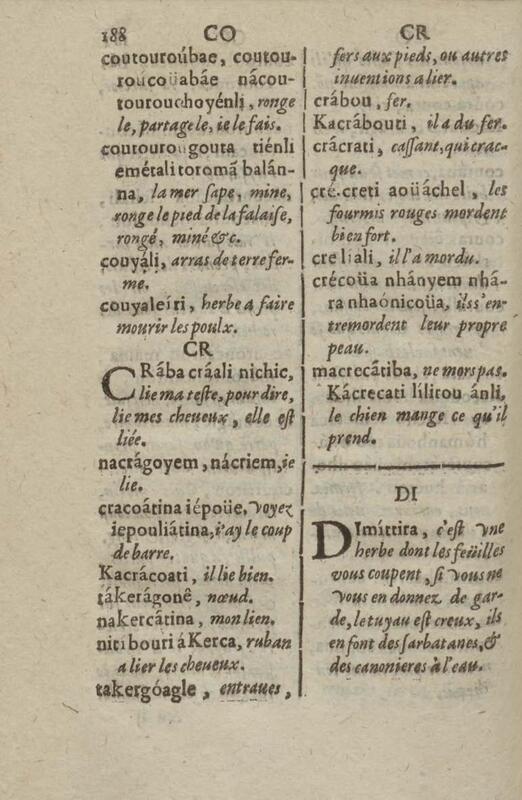 188
CO
CR
coutouroúbae, coutou-
roúcoüabáe nácou-
tourouchoyénli, ronge
le, partage le, ie le fais.
coutourougouta tiénli
emétali toromã balán-
na, la mer sape, mine,
ronge le pied de la falaise,
rongé, miné &c.
couyáli, arras de terre fer-
me.
couyaleíri, herbe a faire
mourir les poulx.
CR
CRába cráali nichic,
lie ma teste, pour dire,
lie mes cheueux, elle est
liée.
nacrágoyem, nácriem, ie
lie.
cracoátina iépoüe, voyez
iepouliátina, i'ay le coup
de barre.
Kacrácoati, il lie bien.
tákerágonê, nœud.
nakercâtina, mon lien.
niti bouri á Kerca, ruban
a lier les cheueux.
takergóagle, entraues,
fers aux pieds, ou autres
inuentions a lier.
crábou, fer.
Kacrábouti, il a du fer.
crácrati, cassant, qui crac-
que.
cré.creti aoüáchel, les
fourmis rouges mordent
bien fort.
cre liali, il l'a mordu.
crécoüa nhányem nhá-
ra nhaónicoüa, ils s'en-
tremordent leur propre
peau.
macrecâtiba, ne mors pas.
Kácrecati lílirou ánli,
le chien mange ce qu'il
prend.
DI
DImíttira, c'est vne
herbe dont les feüilles
vous coupent, si vous ne
vous en donnez de gar-
de, le tuyau est creux, ils
en font des sarbatanes, &
des canonieres à l'eau.